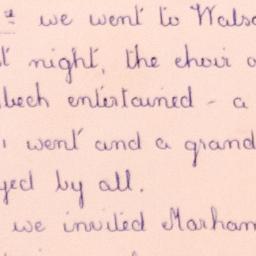 we went to Wals
t night, the choir o
bech entertained - a
went and a grand
yed by all.
we invited Marham